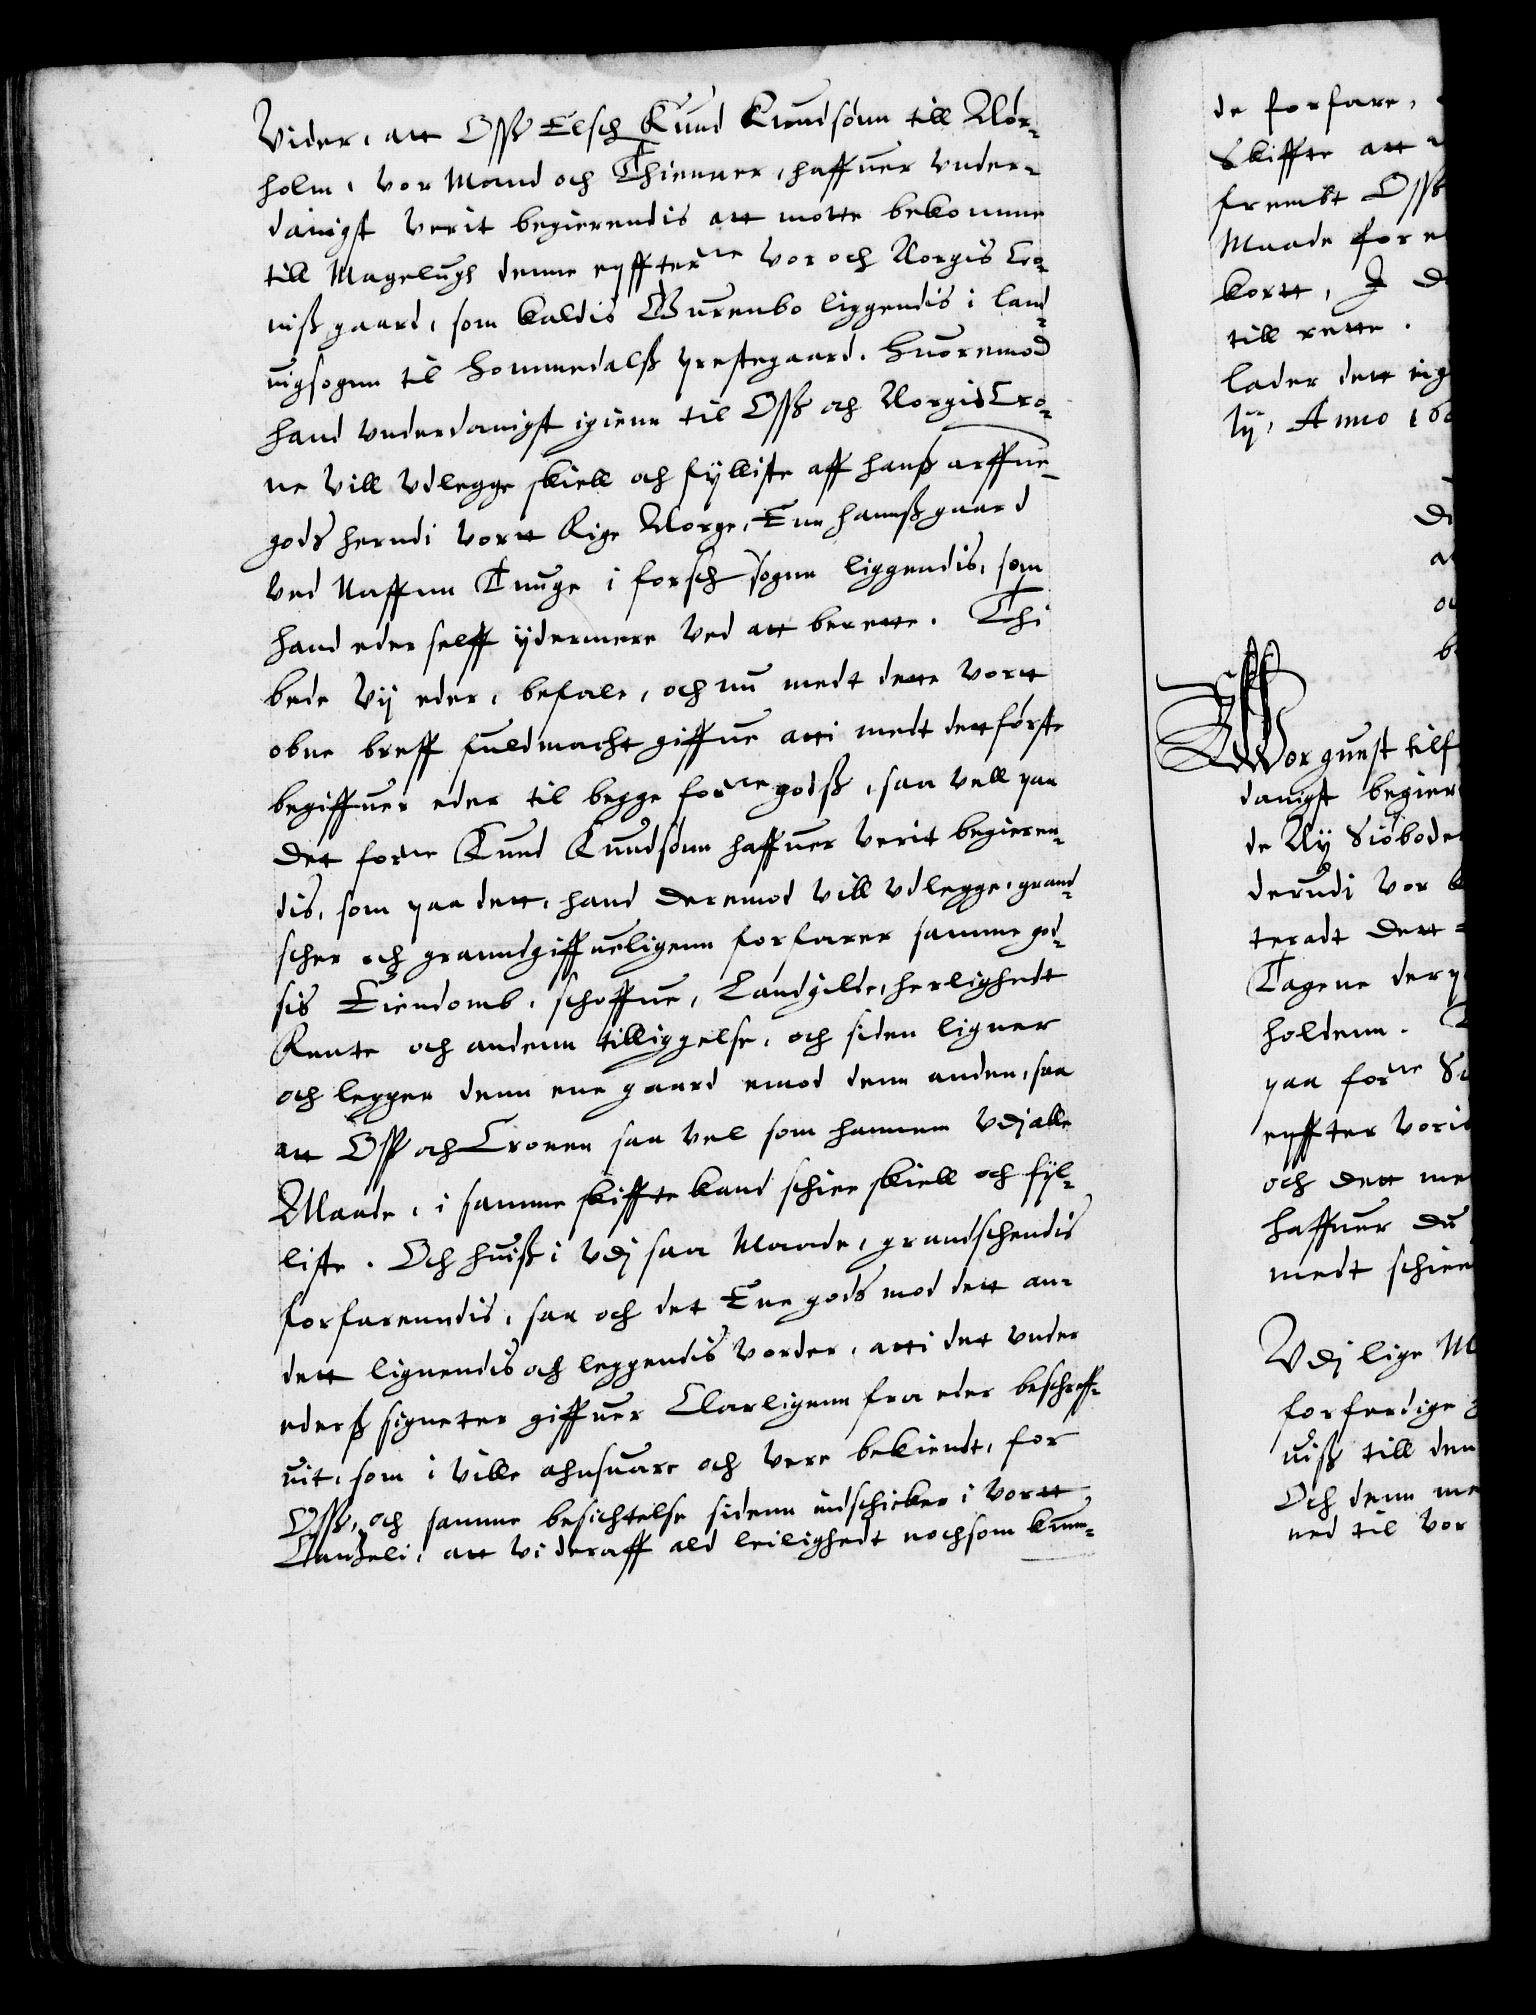 Vider, att Osß Elsch Knud Knudsønn till Nór-
holm, vor Mand och Thienner, haffuer vnder-
danigst verit begierendis att motte bekomme
till Magelugh denne epffterne vor och Norgis Cro-
niß gaard, som kaldis Burenbo liggendis i land-
uigsognn til Hommedalß prestegaard. Huoremod
hand vnderdanigst igienn til Osß och Norgis Cro-
ne vill vdlegge skiell och fylliste aff hanß arffue-
gods herudi vortt Rige Norge, Enn hannß gaard
ved Naffnn Tnuge i forsch sognn liggendis, som
hand eder selff ydermere ved att berette. Thi
bede vij eder, befale, och nu medt dette vortt
obne breff fuldmacht giffue atti medt dett første
begiffuer eder til begge forne godß, saa vell paa
dett forne Knud Knudsønn haffuer verit begieren-
dis, som paa dett, hand deremod vill vdlegge, grand-
scher och granndgiffueligenn forfarer samme god-
sis Eiendomb, schoffue, Landgilde, herlighedt
Rente och andenn tilliggelse, och siden ligner
och legger denn ene gaard emod denn anden, saa
att Osß och Cronen saa vel som hannem vdj alle
Maade, i samme skiffte kand schee skiell och fyl-
liste. Och huiß i vdj saa Maade, grandschendis
forfarenndis, saa och det Ene gods mod dett an-
dett lignendis och leggendis vorder, atti det vnder
ederß signeter giffuer Clarligenn fra eder beschreff-
uit, som i ville ahnsuare och vere bekiendt, for
Osß, och samme besichtelse sidenn indschicker i vortt
Canzeli, att vi deraff ald leilighedt nochsom kunn-
de forfare,
Skiffte att
frembt Osß
Maade for
kortt, J
till rette.
lader dett
ly, Anno
Wor gunst
danigst begier
de Ny Siøbode
derudi vor
teradt dett
Tagene der
holdenn.
paa forne
epffter
och dett
haffuer du
medt schee
Vdj lige
forferdige
uiß till den
Och denn
ned til vor